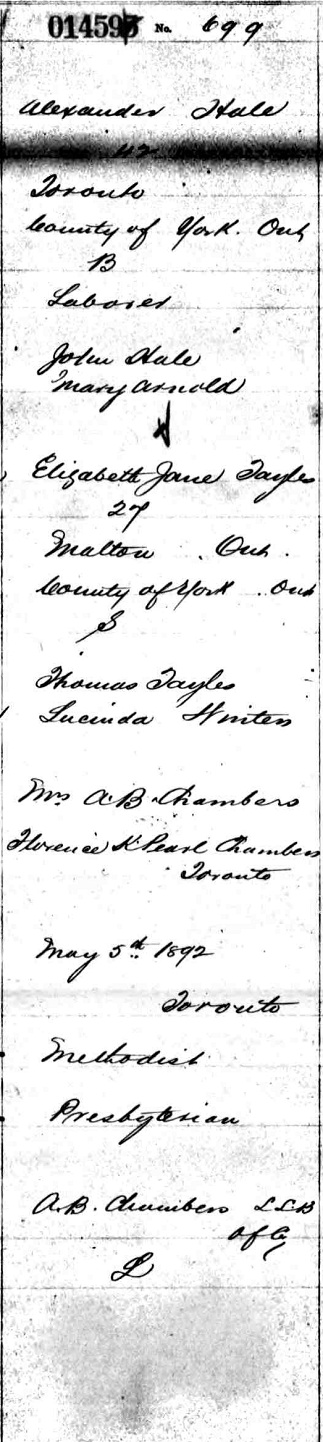 014595 No. 699
Alexander Hale
42
Toronto
County of York. Ont
B
Laborer
John Hale
Mary Arnold
Elizabeth Jane Tayles
27
Malton . Ont.
County of York . Ont
S
Thomas Tayles
Lucinda Winters
Mrs A.B. Chambers
Florence K Pearl Chambers
Toronto
May 5th 1892
Toronto
Methodist
Presbyterian
A.B. Chambers LLB
L